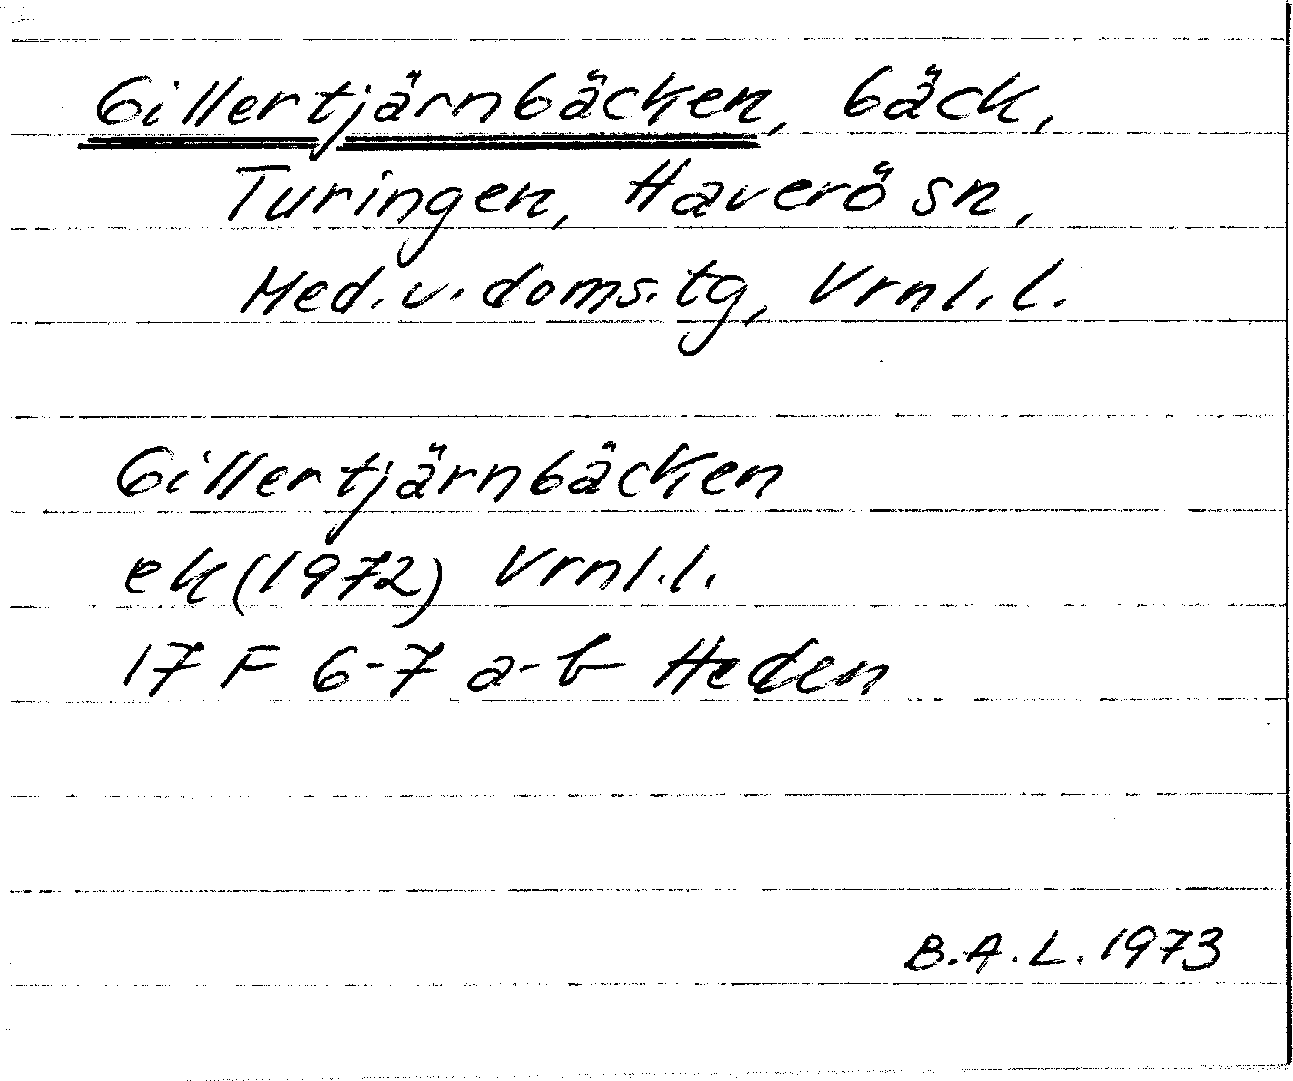 Gillertjärnbäcken, bäck,
Turingen, Haverö sn,
Med. v. doms. tg, Vrnl. l.
Gillertjärnbäcken
ek (1972) Vrnl. l.
17 F 6-7 a-b Heden
B.A.L. 1973